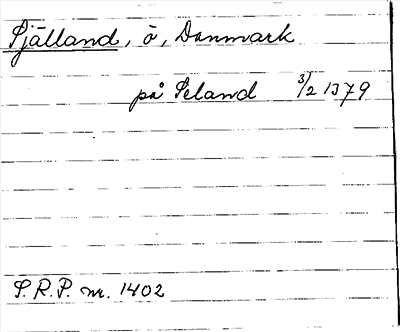 Själland, ö, Danmark
på Seland 3/2 1379
S.R.P. nr. 1402